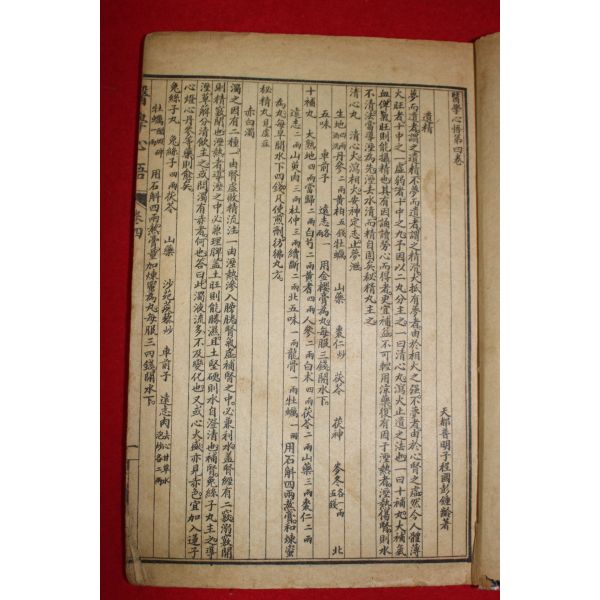 醫學心悟第四卷
天都普明子程國彭鍾齡著
遺精
夢而遺者謂之遺精不夢而遺者謂之精滑大抵有夢者由於相火之強不夢者由於心腎之虛然今人體薄
火旺者十中之一虛弱者十中之九予因以二丸分主之一曰清心丸瀉火止遺之法也一曰十補丸大補氣
血俾氣旺則能攝精也其有因誦讀勞心而得者更宜補益不可輕用涼藥復有因於溼熱者溼熱傷腎則水
不清法當導溼為先溼去水清而精自固矣秘精丸主之
清心丸　清心火瀉相火安神定志止夢泄
生地四兩丹參二兩黃柏五錢牡蠣　山藥　棗仁炒　茯苓　茯神　麥冬各一兩五錢　北
五味　車前子　遠志　用金櫻膏為丸每服三錢開水下
十補丸　大熟地四兩當歸二兩白芍二兩黃耆四兩人參二兩白朮四兩茯苓二兩山藥三兩棗仁二兩
遠志一兩山萸肉三兩杜仲三兩續斷二兩北五味一兩龍骨一兩牡蠣一兩　用石斛四兩熬膏和煉蜜
為丸每早開水下四錢
秘精丸見虛症
赤白濁
濁之因有二種一由腎虛敗精流注一由溼熱滲入膀胱腎氣虛補腎之中必兼利水蓋腎經有二竅溺竅開
則精竅閉也溼熱者導溼之中必兼理脾蓋土旺則能勝濕且土堅礦則水自澄清也補腎兔絲子丸主之導
溼萆薢分清飲主之或問濁有赤者何也答曰此濁液流多不及變化也又或心火盛亦見赤色宜加入蓮子
心燈心丹參等藥則愈矣
兔絲子丸　兔絲子四兩茯苓　山藥　沙苑蒺藜炒　車前子　遠志肉去心甘草水泡炒各二兩
牡蠣　用石斛四兩熬膏量加煉蜜為丸每服三四錢開水下
醫學心悟　卷四